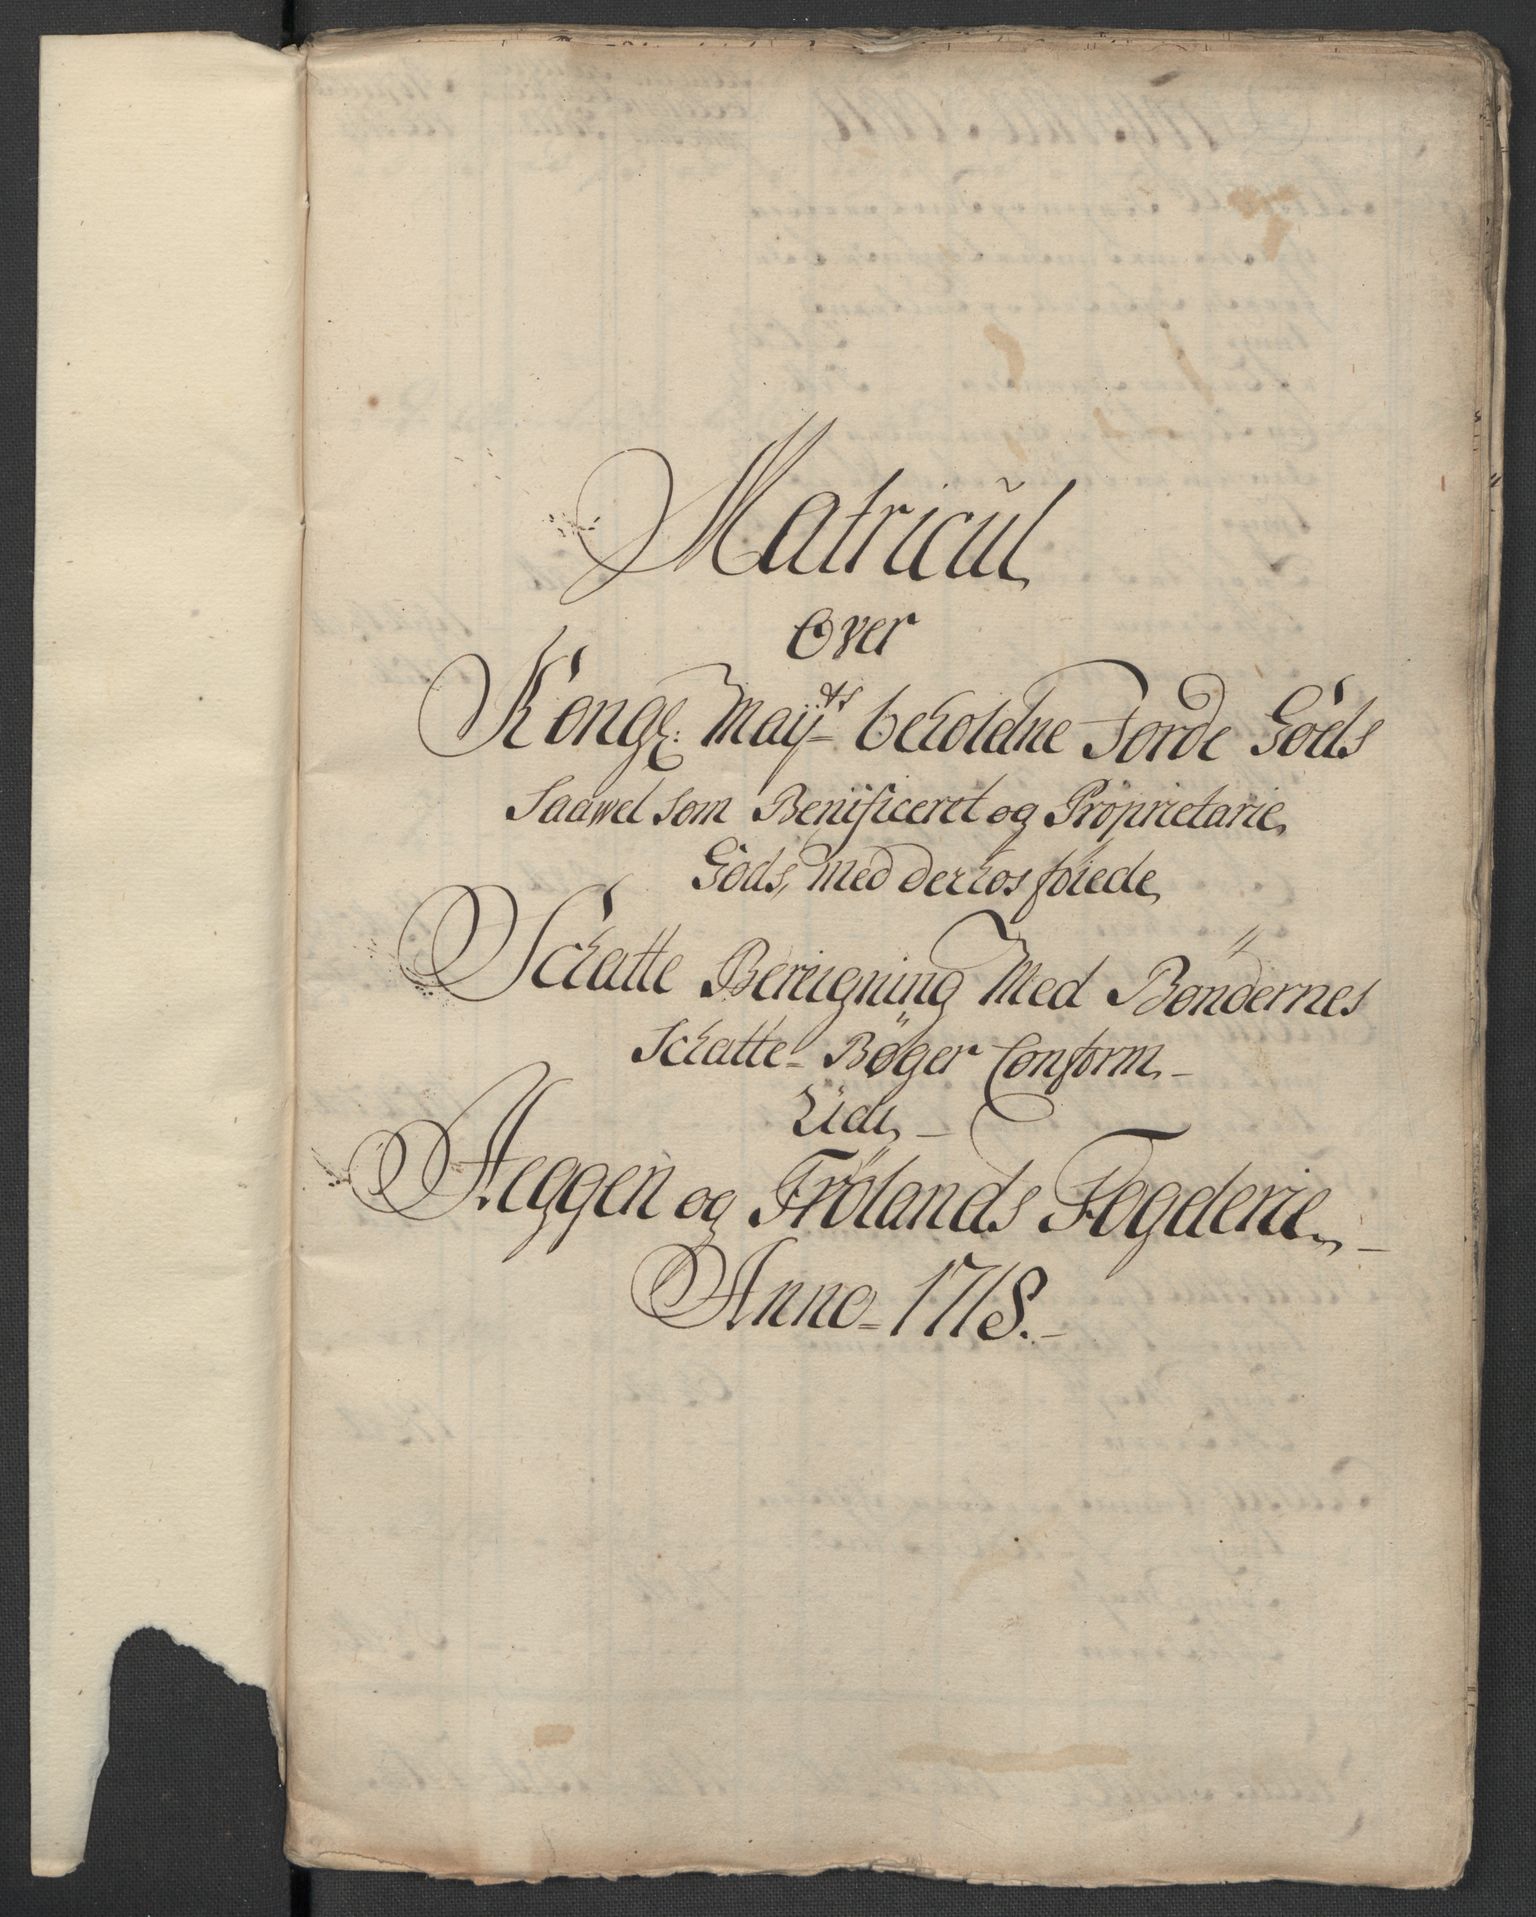 Matricul
Over
Kongl: Maÿts beholdne Jorde Gods
Saawel som Benificeret og Proprietarie
Gods, med derhos föiede
Schatte Bereigning Med Bøndernes
Schatte- Bøger Conform
Udi
Heggen og Frölands Fogderie
Anno- 1718.